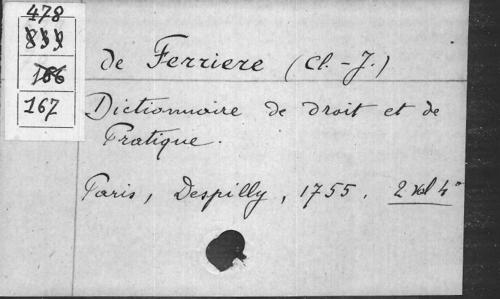 478
166
167
de Ferriere (Cl.-J.)
Dictionnaire de droit et de
Pratique.
Paris, Despilly, 1755. 2 vol 4°